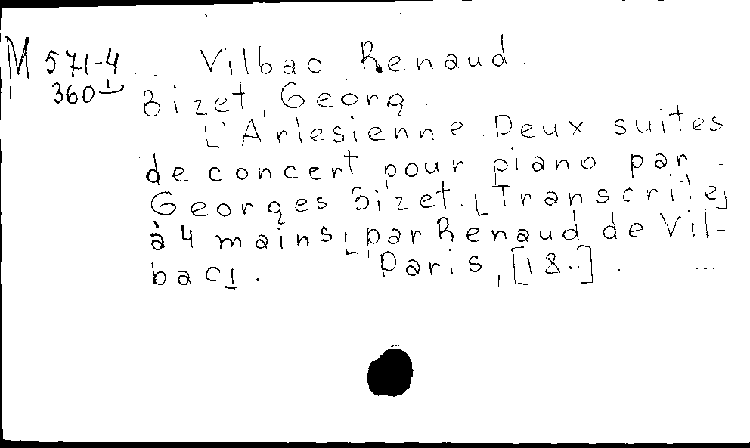 M 571-4 Vilbac Renaud.
360⊥ Bizet, Georg.
L'Arlesienne. Deux suites
de concert pour piano par
Georges Bizet. [Transcrite]
à 4 mains [par Renaud de Vil-
bac]. Paris, [18..]. ...